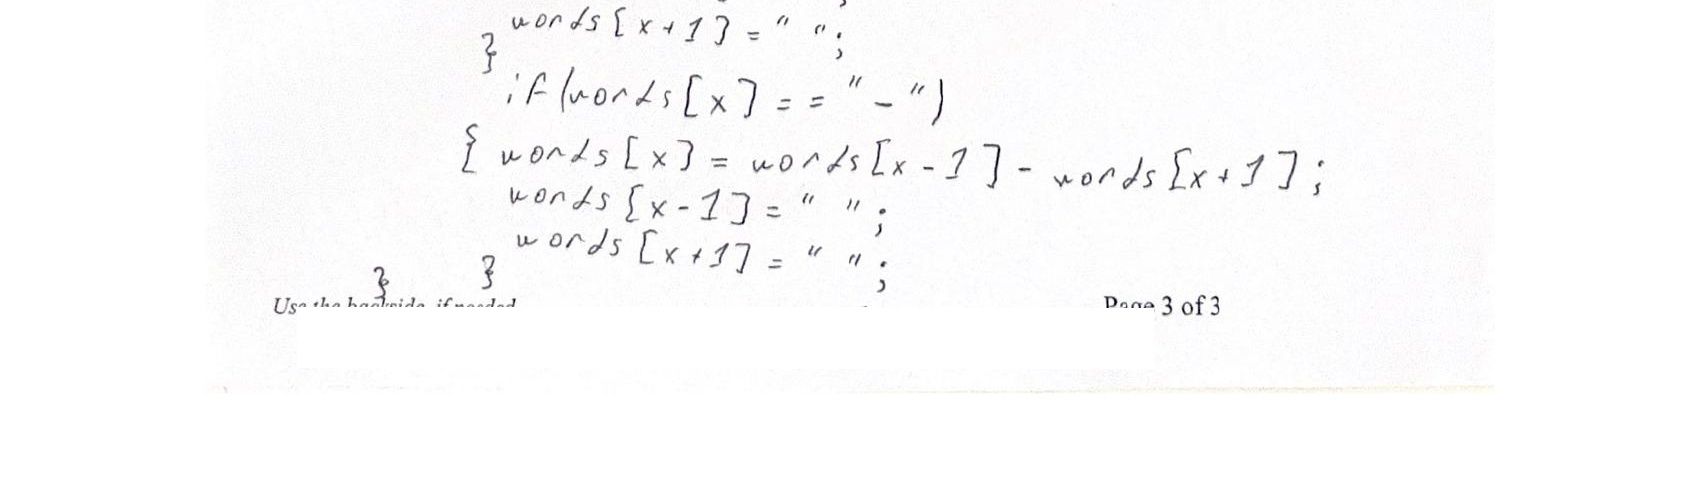 words[x+1] = " ";
}
if(words[x] == "-")
{ words[x] = words[x-1] - words[x+1];
words[x-1] = " ";
words[x+1] = " ";
} }
Use the backside if needed Page 3 of 3